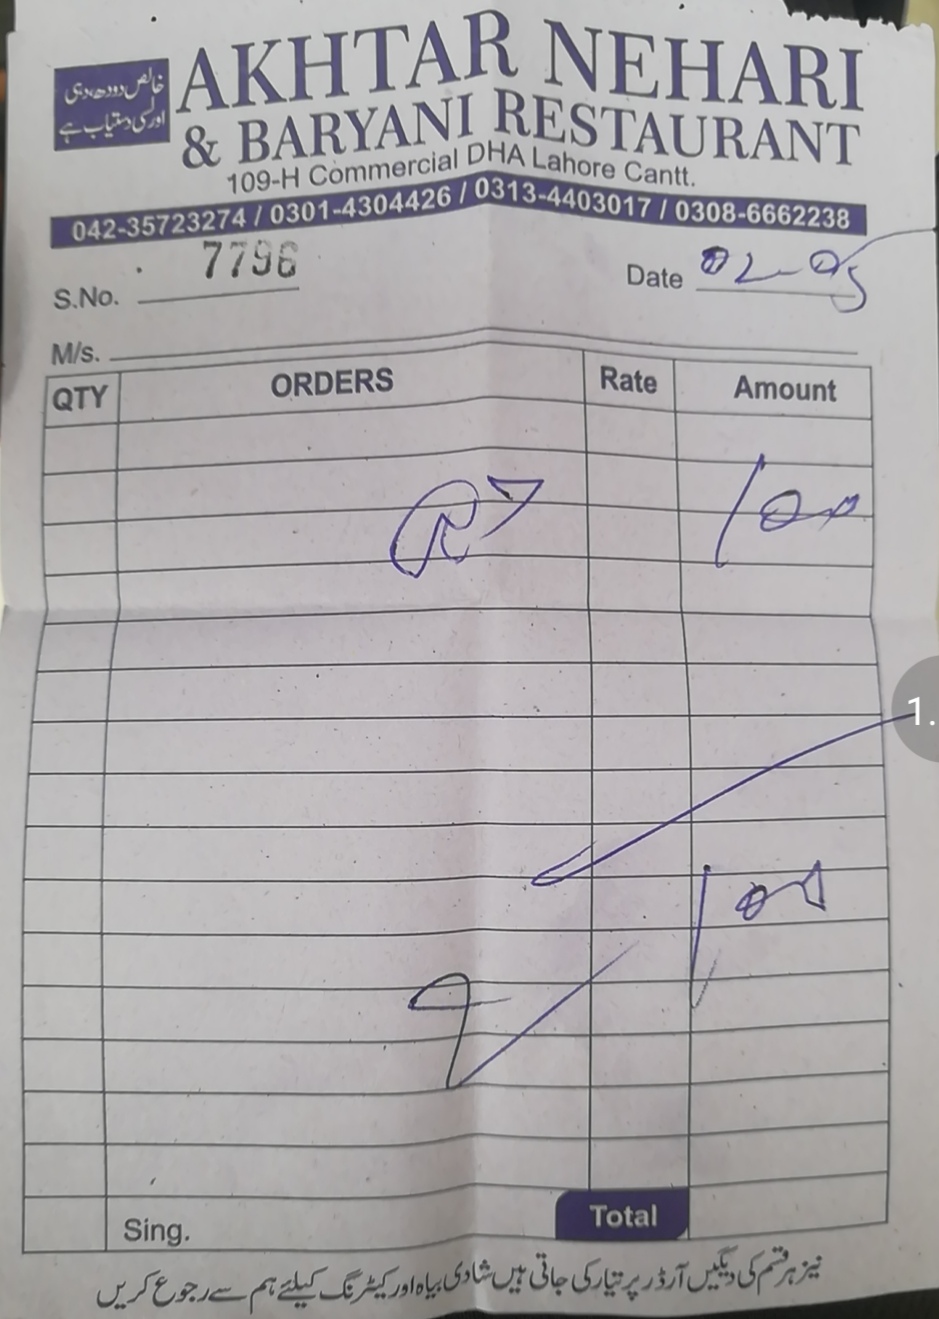 خالص دودھ، دہی
اور لسی دستیاب ہے
AKHTAR NEHARI
& BARYANI RESTAURANT
109-H Commercial DHA Lahore Cantt.
042-35723274 / 0301-4304426 / 0313-4403017 / 0308-6662238
S.No. 7796
Date 02-05
M/s.
QTY ORDERS Rate Amount
100
1.
100
Sing. Total
نیز ہر قسم کی دیگیں آرڈر پر تیار کی جاتی ہیں شادی بیاہ اور کیٹرنگ کیلئے ہم سے رجوع کریں